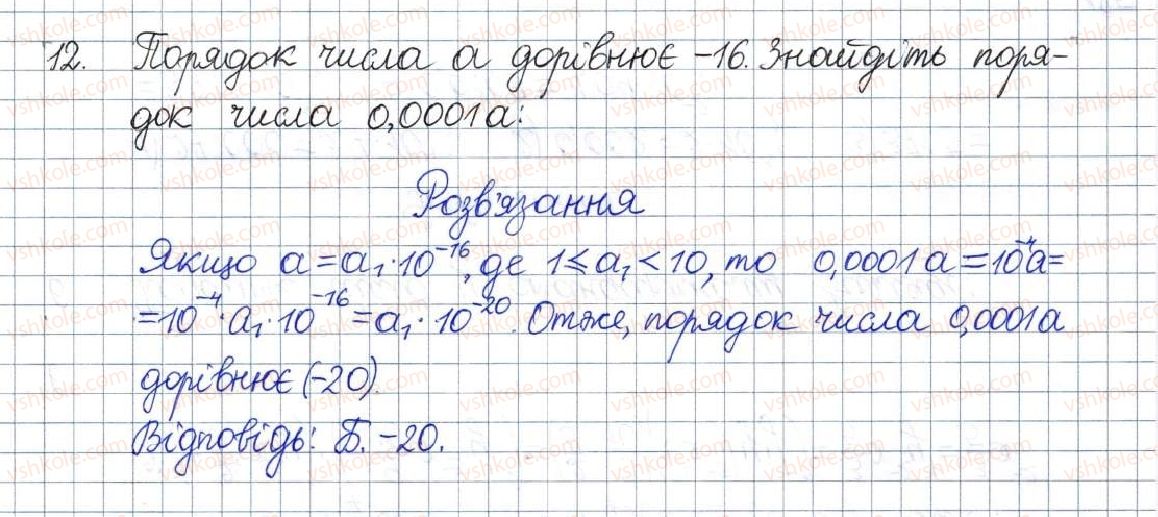 12. Порядок числа a дорівнює -16. Знайдіть поря-
док числа 0,0001a:
Розв'язання
Якщо a=a₁·10⁻¹⁶, де 1≤a₁<10, то 0,0001a=10⁻⁴a=
=10⁻⁴·a₁·10⁻¹⁶=a₁·10⁻²⁰. Отже, порядок числа 0,0001a
дорівнює (-20).
Відповідь: Б. -20.